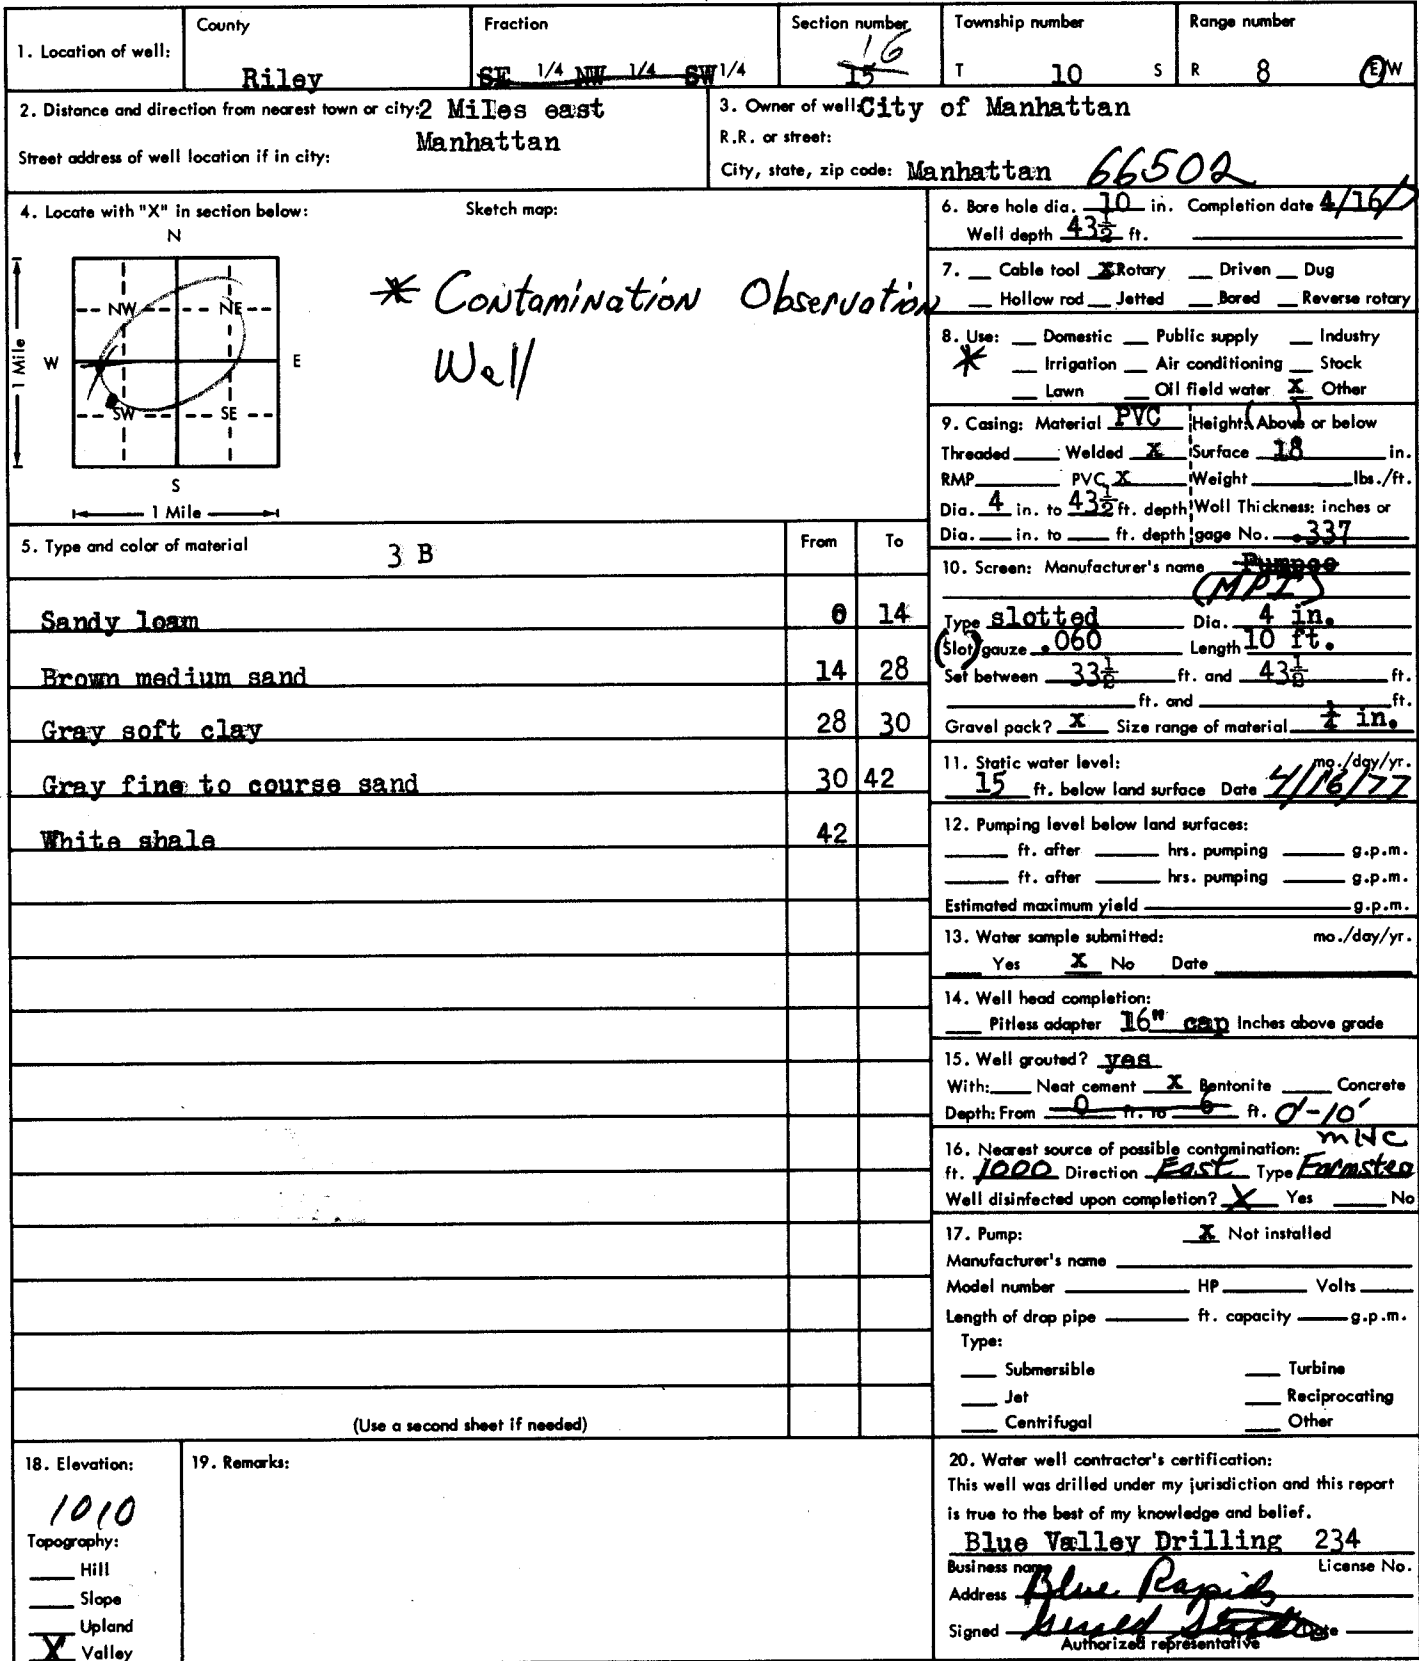 County Fraction Section number Township number Range number
1. Location of well: Riley SE 1/4 NW 1/4 SW 1/4 15 16 T 10 S R 8 E/W
2. Distance and direction from nearest town or city: 2 Miles east
Manhattan
Street address of well location if in city:
3. Owner of well: City of Manhattan
R.R. or street:
City, state, zip code: Manhattan 66502
4. Locate with "X" in section below: Sketch map:
N
NW NE
W E
SW SE
S
1 Mile
1 Mile
* Contamination Observation
Well
5. Type and color of material 3 B From To
Sandy loam 0 14
Brown medium sand 14 28
Gray soft clay 28 30
Gray fine to course sand 30 42
White shale 42
(Use a second sheet if needed)
6. Bore hole dia. 10 in. Completion date 4/16/7
Well depth 43 1/2 ft.
7. Cable tool X Rotary Driven Dug
Hollow rod Jetted Bored Reverse rotary
8. Use: Domestic Public supply Industry
* Irrigation Air conditioning Stock
Lawn Oil field water X Other
9. Casing: Material PVC Height: (Above) or below
Threaded Welded X Surface 18 in.
RMP PVC X Weight lbs./ft.
Dia. 4 in. to 43 1/2 ft. depth Woll Thickness: inches or
Dia. in. to ft. depth gage No. .337
10. Screen: Manufacturer's name
(MPI)
Type slotted Dia. 4 in.
(Slot) gauze .060 Length 10 ft.
Set between 33 1/2 ft. and 43 1/2 ft.
ft. and ft.
Gravel pack? X Size range of material in.
11. Static water level: mo./day/yr.
15 ft. below land surface Date 4/16/77
12. Pumping level below land surfaces:
ft. after hrs. pumping g.p.m.
ft. after hrs. pumping g.p.m.
Estimated maximum yield g.p.m.
13. Water sample submitted: mo./day/yr.
Yes X No Date
14. Well head completion:
Pitless adapter 16" cap Inches above grade
15. Well grouted? yes
With: Neat cement X Bentonite Concrete
Depth: From 0 ft. to 6 ft. 0'-10'
16. Nearest source of possible contamination: mHC
ft. 1000 Direction East Type Farmstea
Well disinfected upon completion? X Yes No
17. Pump: X Not installed
Manufacturer's name
Model number HP Volts
Length of drop pipe ft. capacity g.p.m.
Type:
Submersible Turbine
Jet Reciprocating
Centrifugal Other
18. Elevation:
1010
Topography:
Hill
Slope
Upland
X Valley
19. Remarks:
20. Water well contractor's certification:
This well was drilled under my jurisdiction and this report
is true to the best of my knowledge and belief.
Blue Valley Drilling 234
Business name License No.
Address Blue Rapids
Signed Date
Authorized representative